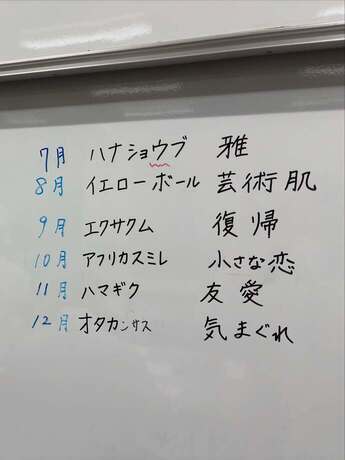 7月 ハナショウブ 雅
8月 イエローボール 芸術肌
9月 エクサクム 復帰
10月 アフリカスミレ 小さな恋
11月 ハマギク 友愛
12月 オタカンサス 気まぐれ